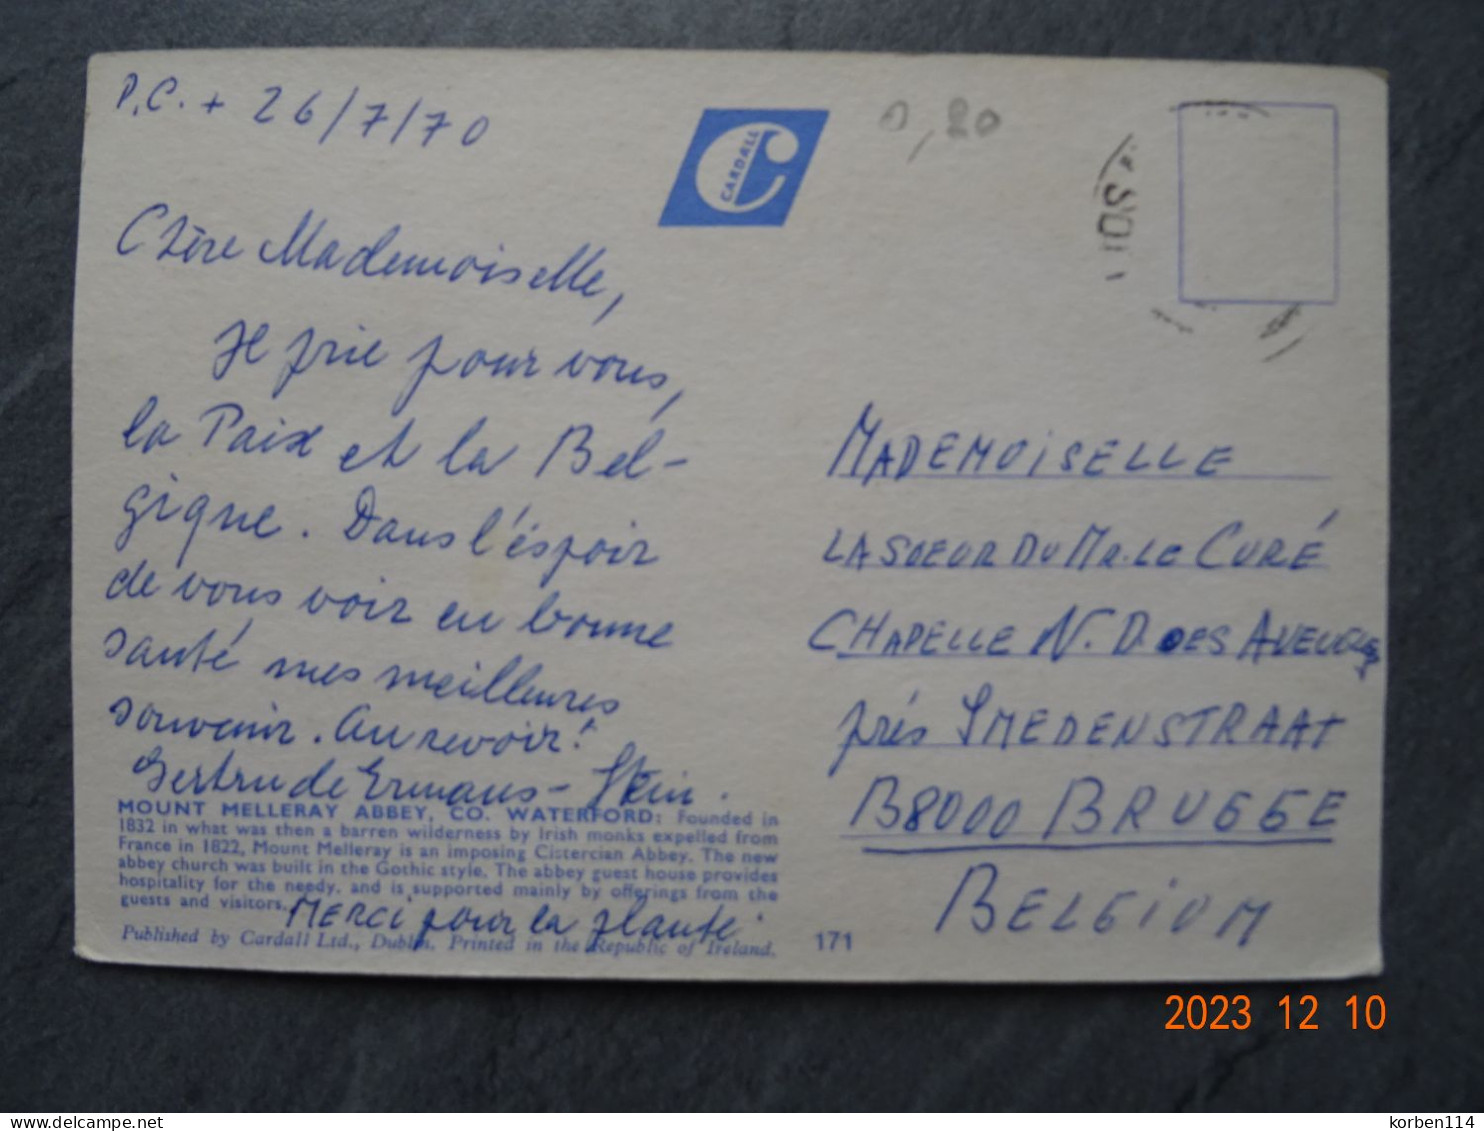 P.C. + 26/7/70
CARDALL
0,20
Chère Mademoiselle,
Je prie pour vous,
la Paix et la Bel-
gique. Dans l'éspoir
de vous voir en bonne
santé mes meilleures
souvenir. Au revoir!
Gertrude Ermans-Stein.
MOUNT MELLERAY ABBEY, CO. WATERFORD: Founded in
1832 in what was then a barren wilderness by Irish monks expelled from
France in 1822, Mount Melleray is an imposing Cistercian Abbey. The new
abbey church was built in the Gothic style. The abbey guest house provides
hospitality for the needy, and is supported mainly by offerings from the
guests and visitors.
MERCI pour la plante.
Published by Cardall Ltd., Dublin. Printed in the Republic of Ireland.
171
MADEMOISELLE
LA SOEUR DU MR. LE CURÉ
CHAPELLE N. D. DES AVEUGLES
prés SMEDENSTRAAT
B8000 BRUGGE
BELGIUM
2023 12 10
delcampe.net
korben114